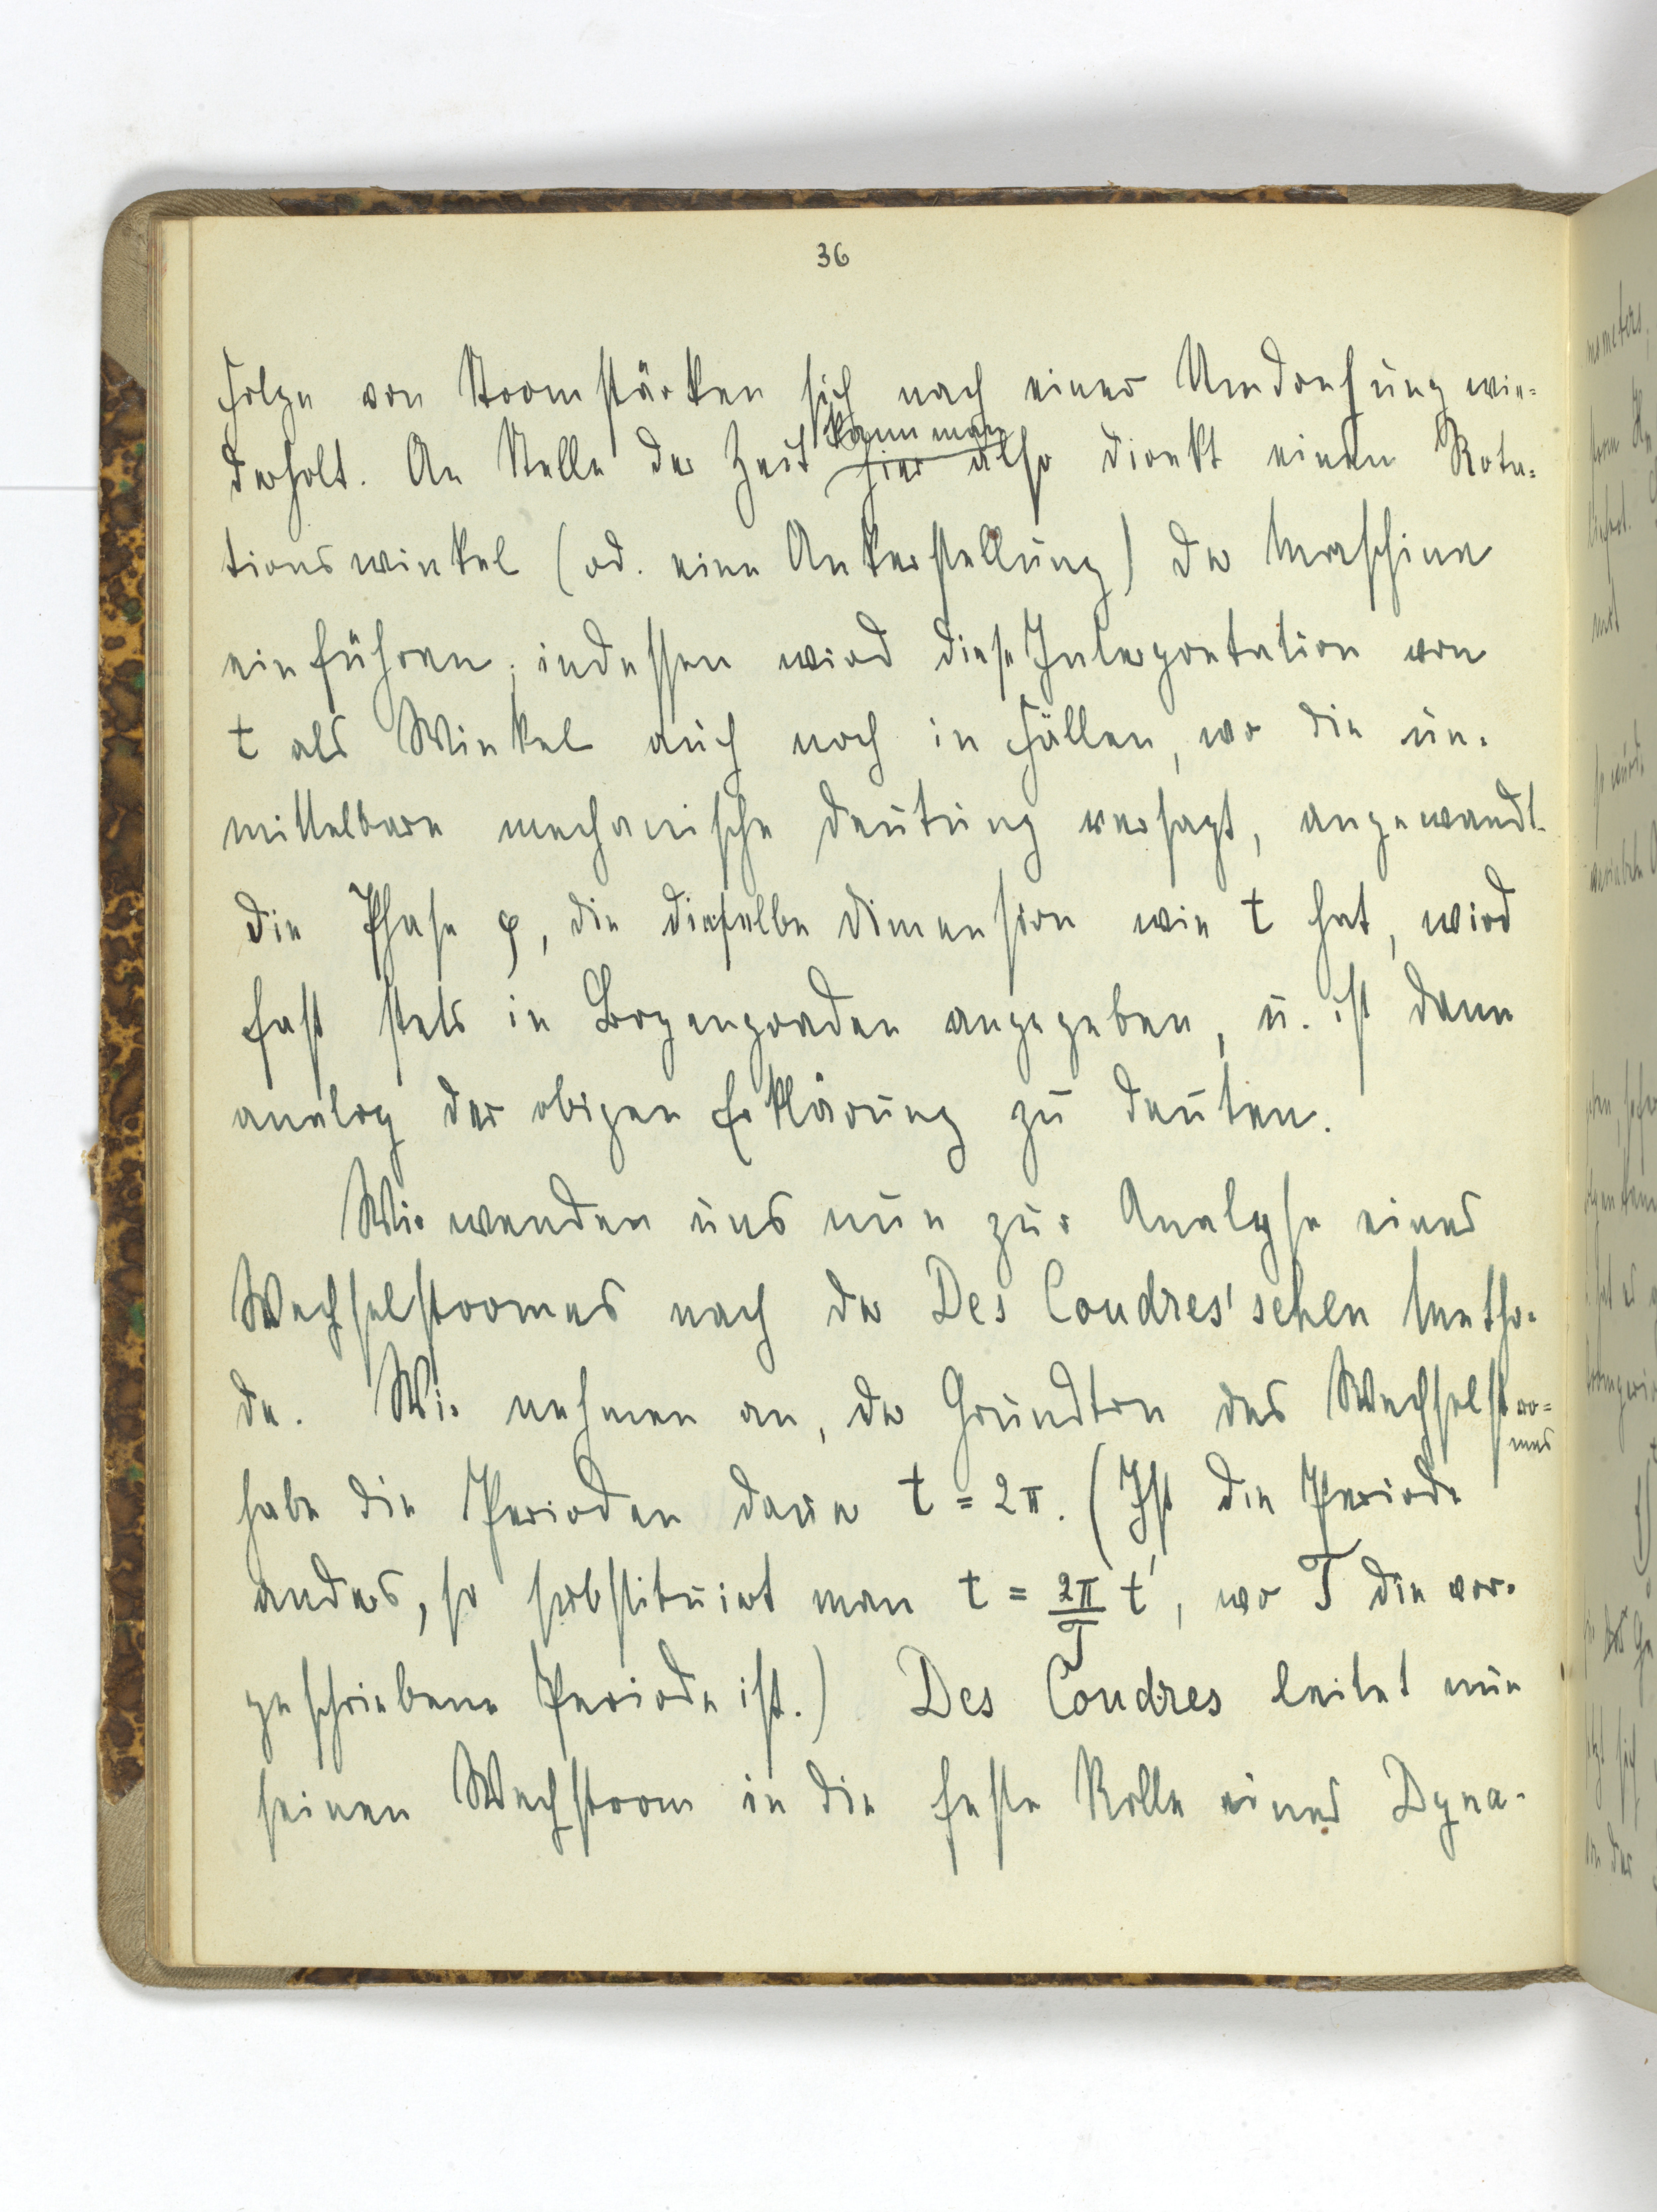 36
Folge von Stromstärken sich nach einer Umdrehung wie-
kann man
derholt. An Stelle der Zeit hier also direkt einen Rota-
tionswinkel (od. eine Ankerstellung) der Maschine
einführen; indessen wird diese Interpretation von
t als Winkel auch noch in Fällen, wo die un-
mittelbare mechanische Deutung versagt, angewandt.
Die Phase φ, die dieselbe Dimension wie t hat, wird
fast stets in Bogengraden angegeben, u. ist dann
analog der obigen Erklärung zu deuten.
Wir wenden uns nun zur Analyse eines
Wechselstromes nach der Des Coudres'schen Metho-
de. Wir nehmen an, der Grundton des Wechselstro-
mes
habe die Perioden dauer t = 2π. (Ist die Periode
anders, so substituirt man t = 2π/T t', wo T die vor-
geschriebene Periode ist.) Des Coudres leitet nun
seinen Wechstrom in die feste Rolle eines Dyna-